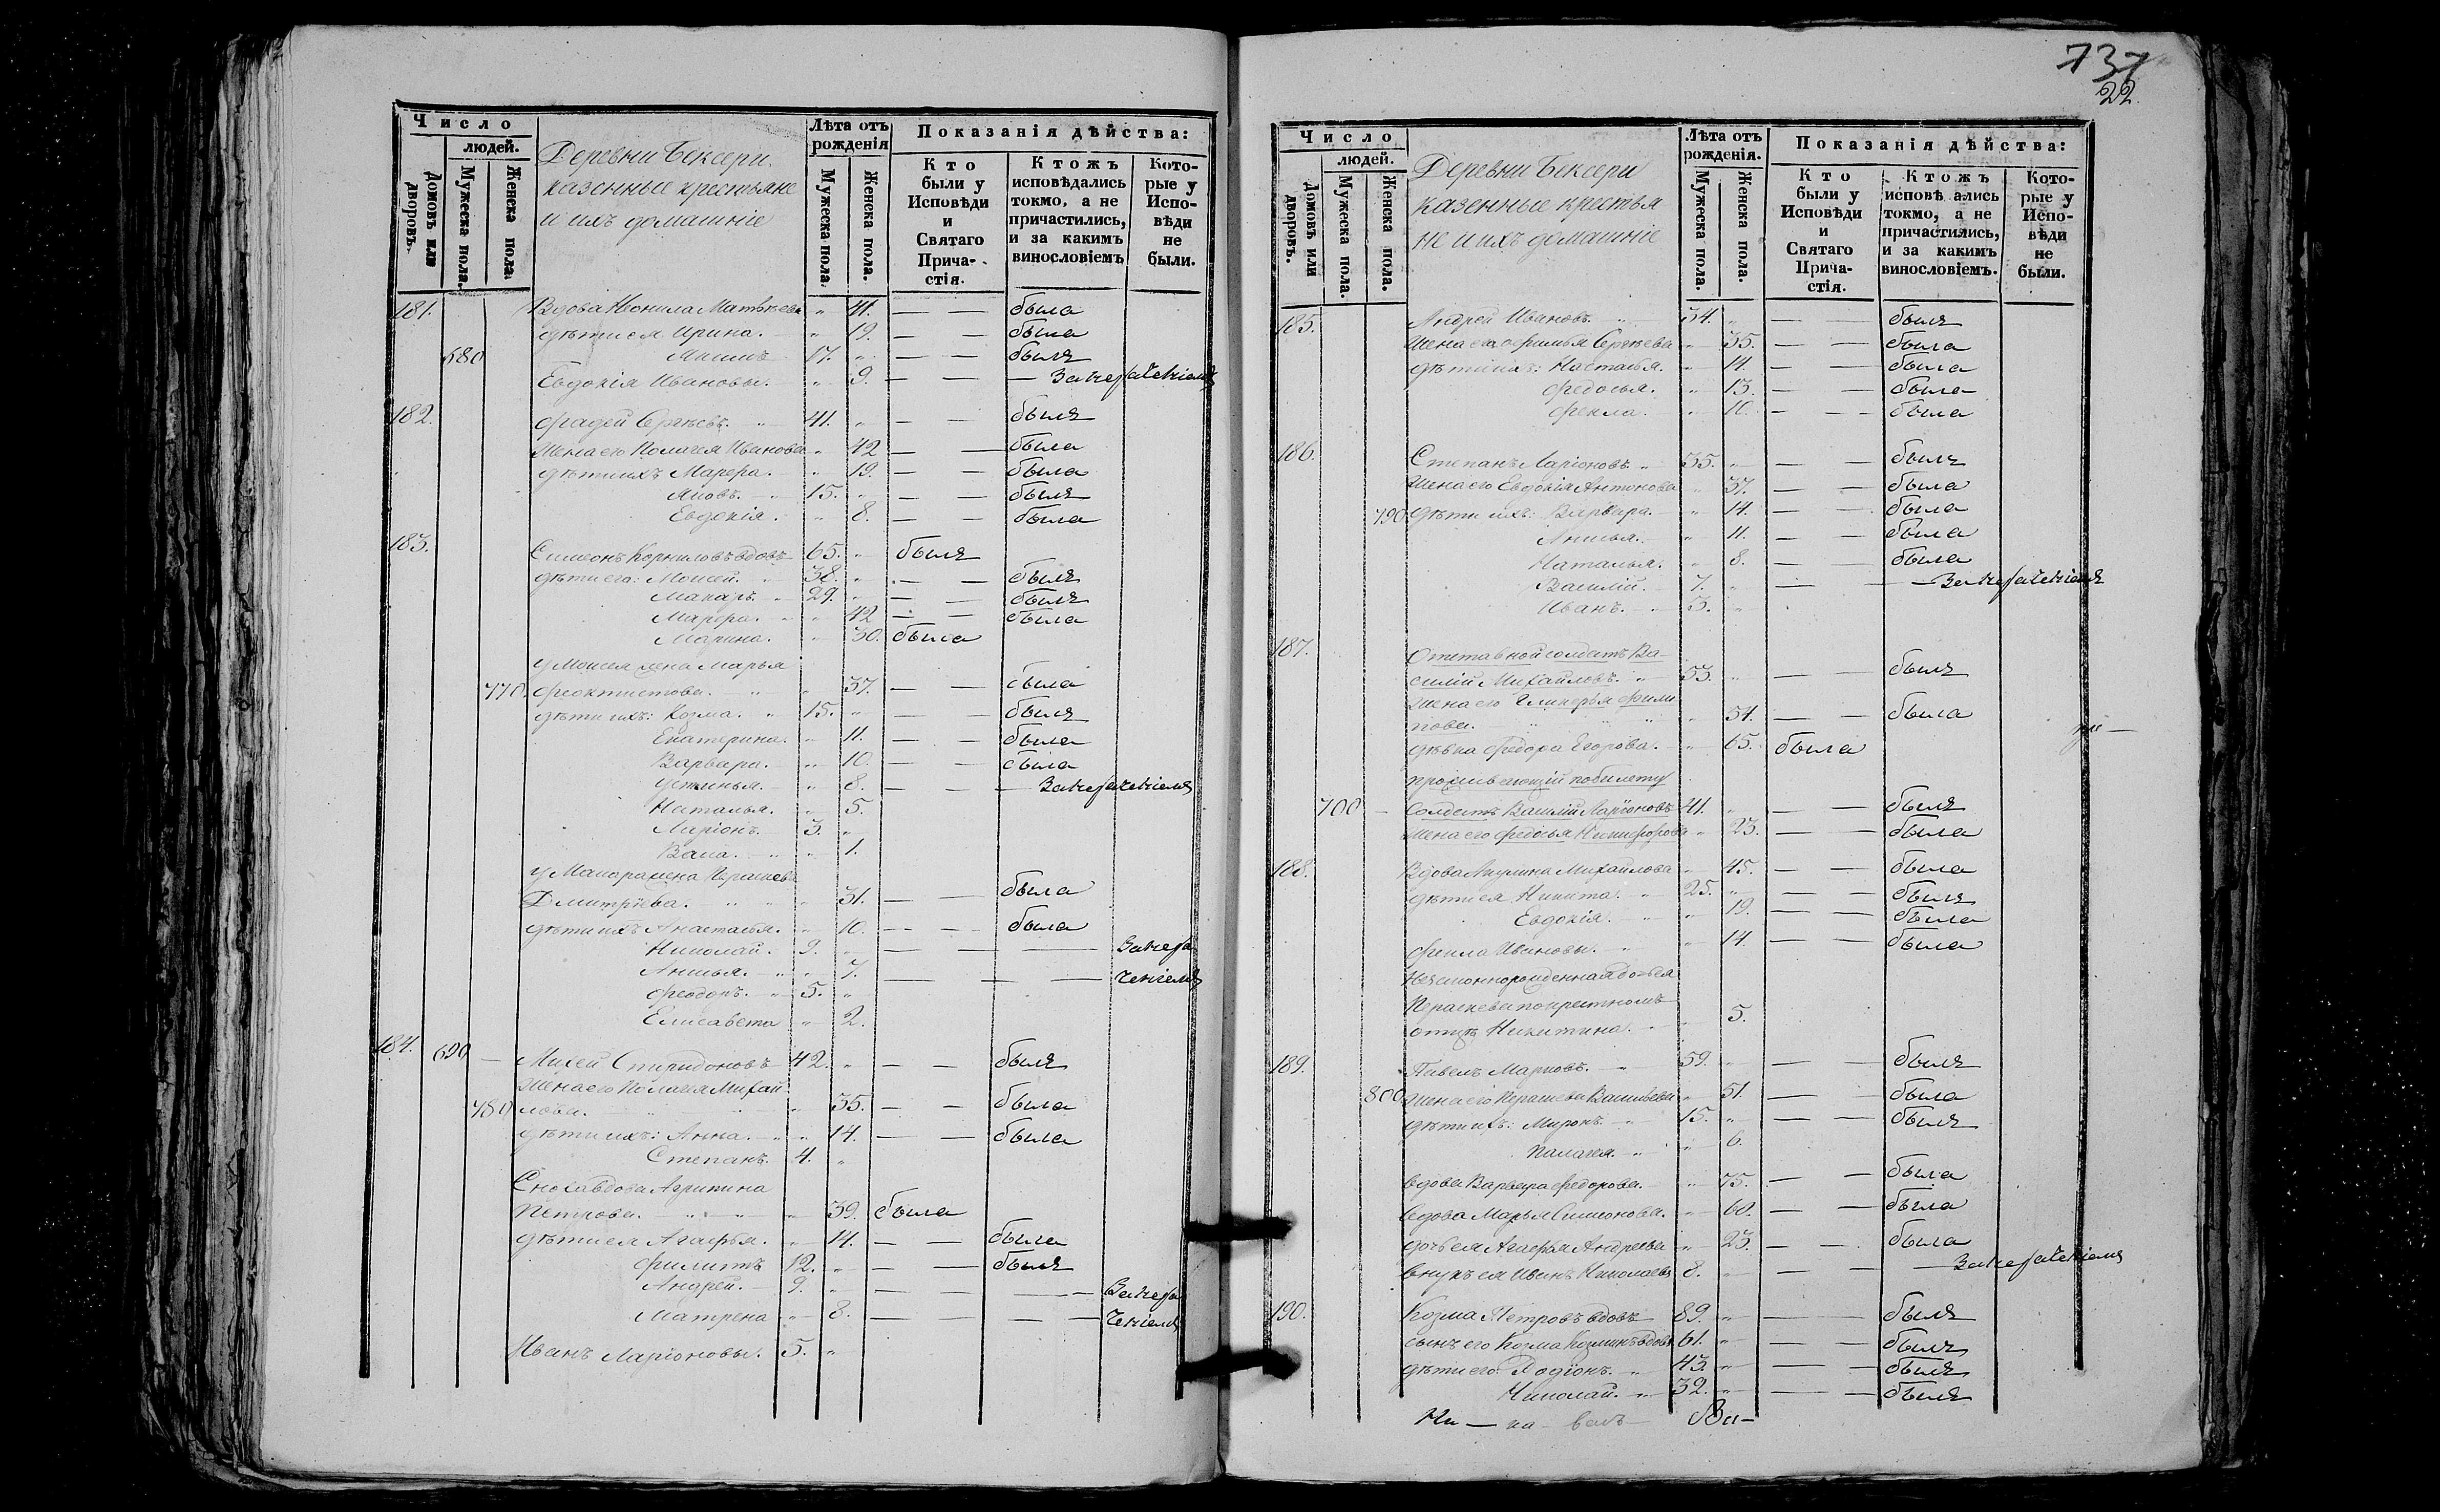 Число
людей.
Домовъ или дворовъ.
Мужеска пола.
Женска пола.
Деревни Бексери
казенные крестьяне
и ихъ домашніе
Лѣта отъ рожденія
Мужеска пола.
Женска пола.
Показанія дѣйства:
Кто были у Исповѣди и Святаго Прича-стія.
Ктожъ исповѣдались токмо, а не причастились, и за какимъ винословіемъ
Кото-рые у Испо-вѣди не были.
181. Вдова Неонила Матвѣева " 41. — — была
дѣти ея Ирина. " 19. — — была
680 17. " — — былъ
Евдокія Ивановы. " 9. — — —
182. Фадей Сергѣевъ. " 41. " — — былъ
Жена его Полагея Иванова " 42 — — была
дѣти ихъ Марфа. " 19. — — была
Яковъ. 15. " — — былъ
Евдокія. " 8. — — была
183. Симеонъ Корниловъ вдовъ 65. " былъ
дѣти его: Моисей. 38. " — — былъ
Макаръ. 29. " — — былъ
Марфа. " 42 — — была
Марина. " 30. была
у Моисея жена Марья
770. Феоктистова. " " 37. — — была
дѣти ихъ: Козма. " 15. " — — былъ
Екатерина. " 11. — — была
Варвара. " 10. — — была
Устинья. " 8. — — —
Наталья. " 5.
Ларіонъ. 3. "
" 1.
у Макара жена
Дмитріева. " " 31. — — была
дѣти ихъ Анастасья. " 10. — — была
Николай. 9. " — — —
Анисья. " 7. — — —
Феодоръ. 5. "
Елисавета " 2.
184. 690 — Михей Спиридоновъ 42. " — — былъ
Жена его Полагея Михай
780 лова. " 35. — — была
дѣти ихъ: Анна. " 14. — — была
Степанъ. 4. "
Сноха вдова Агрипина
Петрова. " " 39. была
дѣти ея Агафья. " 14. — — была
Филиппъ 12. " — — былъ
Андрей. 9. " — — —
Матрена " 8. — — —
Иванъ Ларіоновы. 5. "
737
22.
Число
людей.
Домовъ или дворовъ.
Мужеска пола.
Женска пола.
Деревни Бексери
казенные крестья
не и ихъ домашніе
Лѣта отъ рожденія.
Мужеска пола.
Женска пола.
Показанія дѣйства:
Кто были у Исповѣди и Святаго Прича-стія.
Ктожъ исповѣ ались токмо, а не причастились, и за какимъ винословіемъ.
Кото-рые у Испо-вѣди не были.
185. Андрей Ивановъ. " 34. " — — былъ
Жена его Офимья Сергѣева " 35. — — была
дѣти ихъ: Настасья. " 14. — — была
Федосья. " 13. — — была
Фекла. " 10. — — была
186. Степанъ Ларіоновъ. " 35. " — — былъ
Жена его Евдокія Антонова " 37. — — была
790 дѣти ихъ: Варвара. " 14. — — была
Анисья. " 11. — — была
Наталья. " 8. — — была
Василій. 7. " — — —
Иванъ. 3. "
187. Отставной солдатъ Ва-
силій Михайловъ. " 53. " — — былъ
Жена его Гликерья Фили
пова. " 51. — — была
дѣвка Федора Егорова. " 65. была
проживающій по билету
700 — Солдатъ Василій Ларіоновъ 41. " — — былъ
Жена его Федосья Никифорова " 23. — — была
188. Вдова Акулина Михайлова " 45. — — была
дѣти ея Никита. 25. " — — былъ
Евдокія. " 19. — — была
Фекла Ивановы. " 14. — — была
Незаконнорожденная дочь ея
по крестному
отцѣ Никитина. " 5.
189. Павелъ Марковъ. " 59. " — — былъ
800 Жена его " 51. — — была
дѣти ихъ: Миронъ. 15. " — — былъ
Палагея. " 6.
вдова Варвара Федорова. " 75. — — была
вдова Марья Симионова. " 60. — — была
дочь ея Агафья Андреева " 23. — — была
внукъ ея Иванъ Николаевъ 8. " — — —
190. Козма Петровъ вдовъ 89. " — — былъ
сынъ его Козма Козминъ вдовъ 61. " — — былъ
дѣти его Родіонъ. " 43. " — — былъ
Николай. 32. " — — былъ